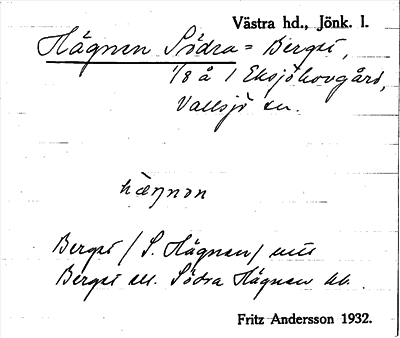 Västra hd., Jönk. l.
Hägnen Södra = Berget,
1/8 å 1 Eksjöhovgård,
Vallsjö sn.
hæŋnən
Berget / S. Hägnen /
Berget ell. Södra Hägnen kb.
Fritz Andersson 1932.